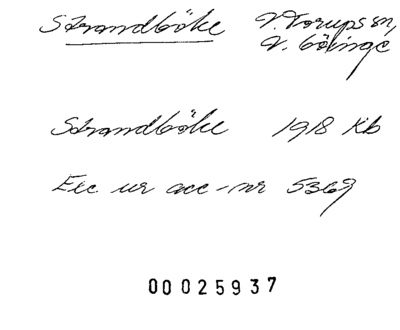 Strandböke V. Torups sn,
V. Göinge
Strandböke 1918 Kb
Exc ur acc-nr 5369
00025937